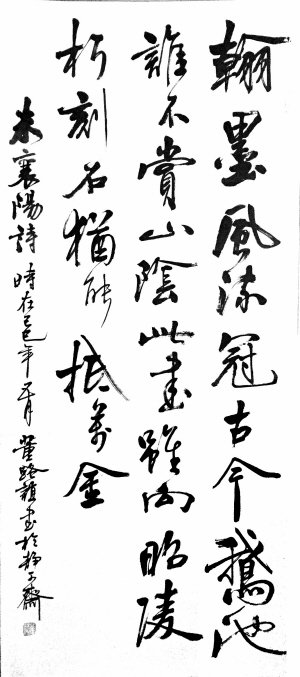 翰墨風流冠古今鵝池
誰不賞山陰此書雖向昭陵
朽刻石猶能抵萬金
米襄陽詩 時在巳年 月 董 書於 齋